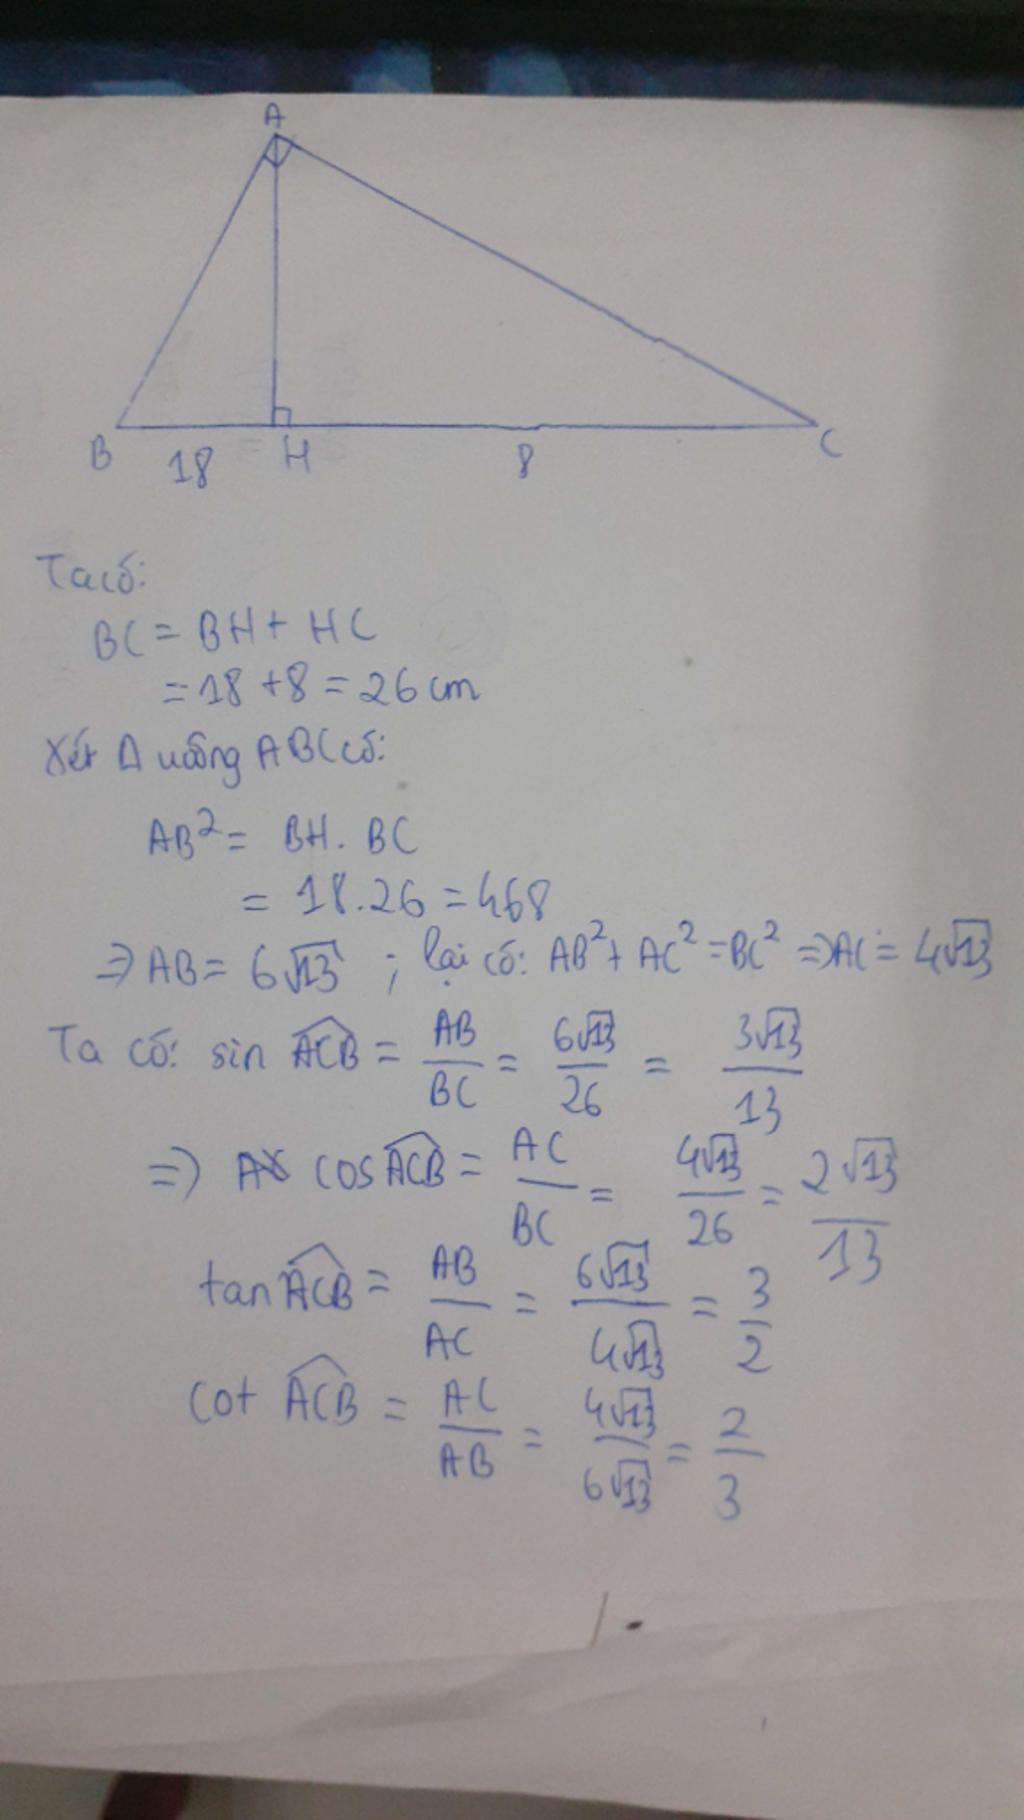 A
B 18 H 8 C
Ta có:
BC = BH + HC
= 18 + 8 = 26 cm
Xét Δ vuông ABC có:
AB² = BH . BC
= 18.26 = 468
⇒ AB = 6√13 ; lại có: AB² + AC² = BC² ⇒ AC = 4√13
Ta có: sin ACB = AB/BC = 6√13/26 = 3√13/13
⇒ cos ACB = AC/BC = 4√13/26 = 2√13/13
tan ACB = AB/AC = 6√13/4√13 = 3/2
cot ACB = AC/AB = 4√13/6√13 = 2/3